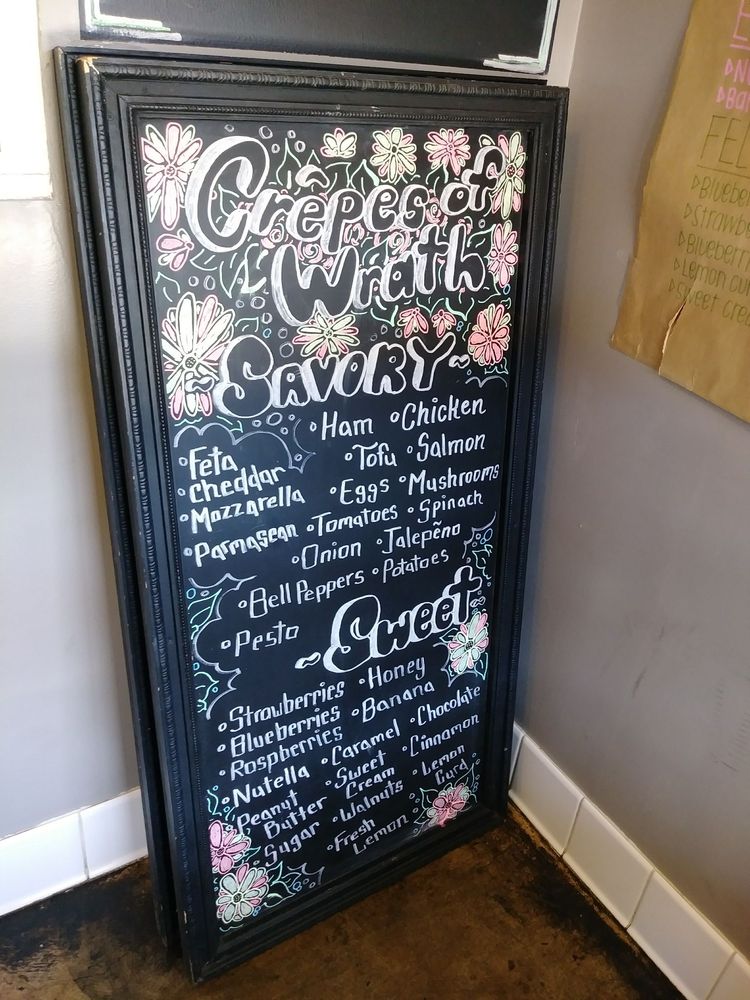 Crêpes of
Wrath
~SAVORY~
°Ham °Chicken
°Feta °Tofu °Salmon
°Cheddar
°Mozzarella °Eggs °Mushrooms
°Parmasean °Tomatoes °Spinach
°Onion °Jalepeño
°Bell Peppers °Potatoes
°Pesto
~Sweet~
°Strawberries °Honey
°Blueberries °Banana
°Raspberries °Caramel °Chocolate
°Nutella °Sweet Cream °Cinnamon
°Peanut Butter °Walnuts °Lemon Curd
°Sugar °Fresh Lemon
▹Strawbe
▹Blueberr
▹Lemon cu
▹Sweet cre